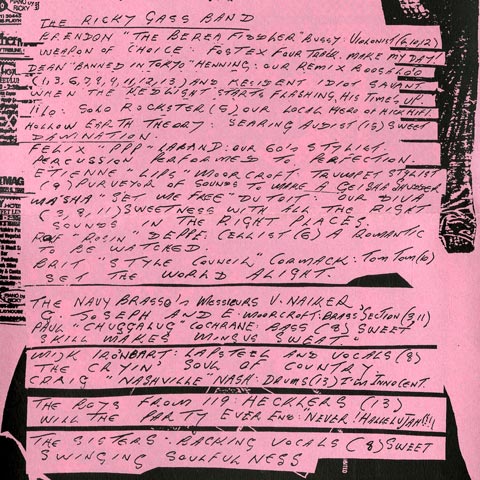 THE RICKY GASS BAND
BRENDON "THE BEREA FIDDLER" BUSSY: VIOLINIST (6,10,12)
WEAPON OF CHOICE: FOSTEX FOUR TRACK. MAKE MY DAY!
DEAN "BANNED IN TOKYO" HENNING: OUR REMIX BOOGALOO
(1,3,6,7,8,9,11,12,13) AND RESIDENT IDIOT SAVANT
WHEN THE REDLIGHT STARTS FLASHING, HIS TIMES UP.
MILO: SOLO ROCKSTER (5) OUR LOCAL HERO OF
HOLLOW EARTH THEORY: SEARING AUDIST (13) SWEET
DAMNATION.
FELIX "PPP" LABAND: OUR 60'S STYLIST.
PERCUSSION PERFORMED TO PERFECTION.
ETIENNE "LIPS" MOORCROFT: TRUMPET STYLIST
(9) PURVEYOR OF SOUNDS TO MAKE A GEISHA SHUDDER
MA'SHA "SET ME FREE" DU TOIT: OUR DIVA
(2,8,11) SWEETNESS WITH ALL THE RIGHT
SOUNDS IN THE RIGHT PLACES.
"ROSIN" DEPPE: CELLIST (6) A ROMANTIC
TO BE WATCHED.
BRIT "STYLE COUNCIL" CORMACK: TOM TOM (6)
SET THE WORLD ALIGHT.
THE NAVY BRASSO'S MESSIEURS V. NAIKER
C. JOSEPH AND E. MOORCROFT: BRASS SECTION (3,11)
PAUL "CHUGGALUG" COCHRANE: BASS (8) SWEET
SKILL MAKES MINGUS SWEAT"
MIJK IRONBART: LAPSTEEL AND VOCALS (8)
THE CRYIN' SOUL OF COUNTRY.
CRAIG "NASHVILLE" NASH: DRUMS (13) I'M INNOCENT.
THE BOYS FROM 119: HECKLERS (13)
WILL THE PARTY EVER END: "NEVER! HALLELUJAH!!
THE SISTERS: BACKING VOCALS (8) SWEET
SWINGING SOULFULNESS